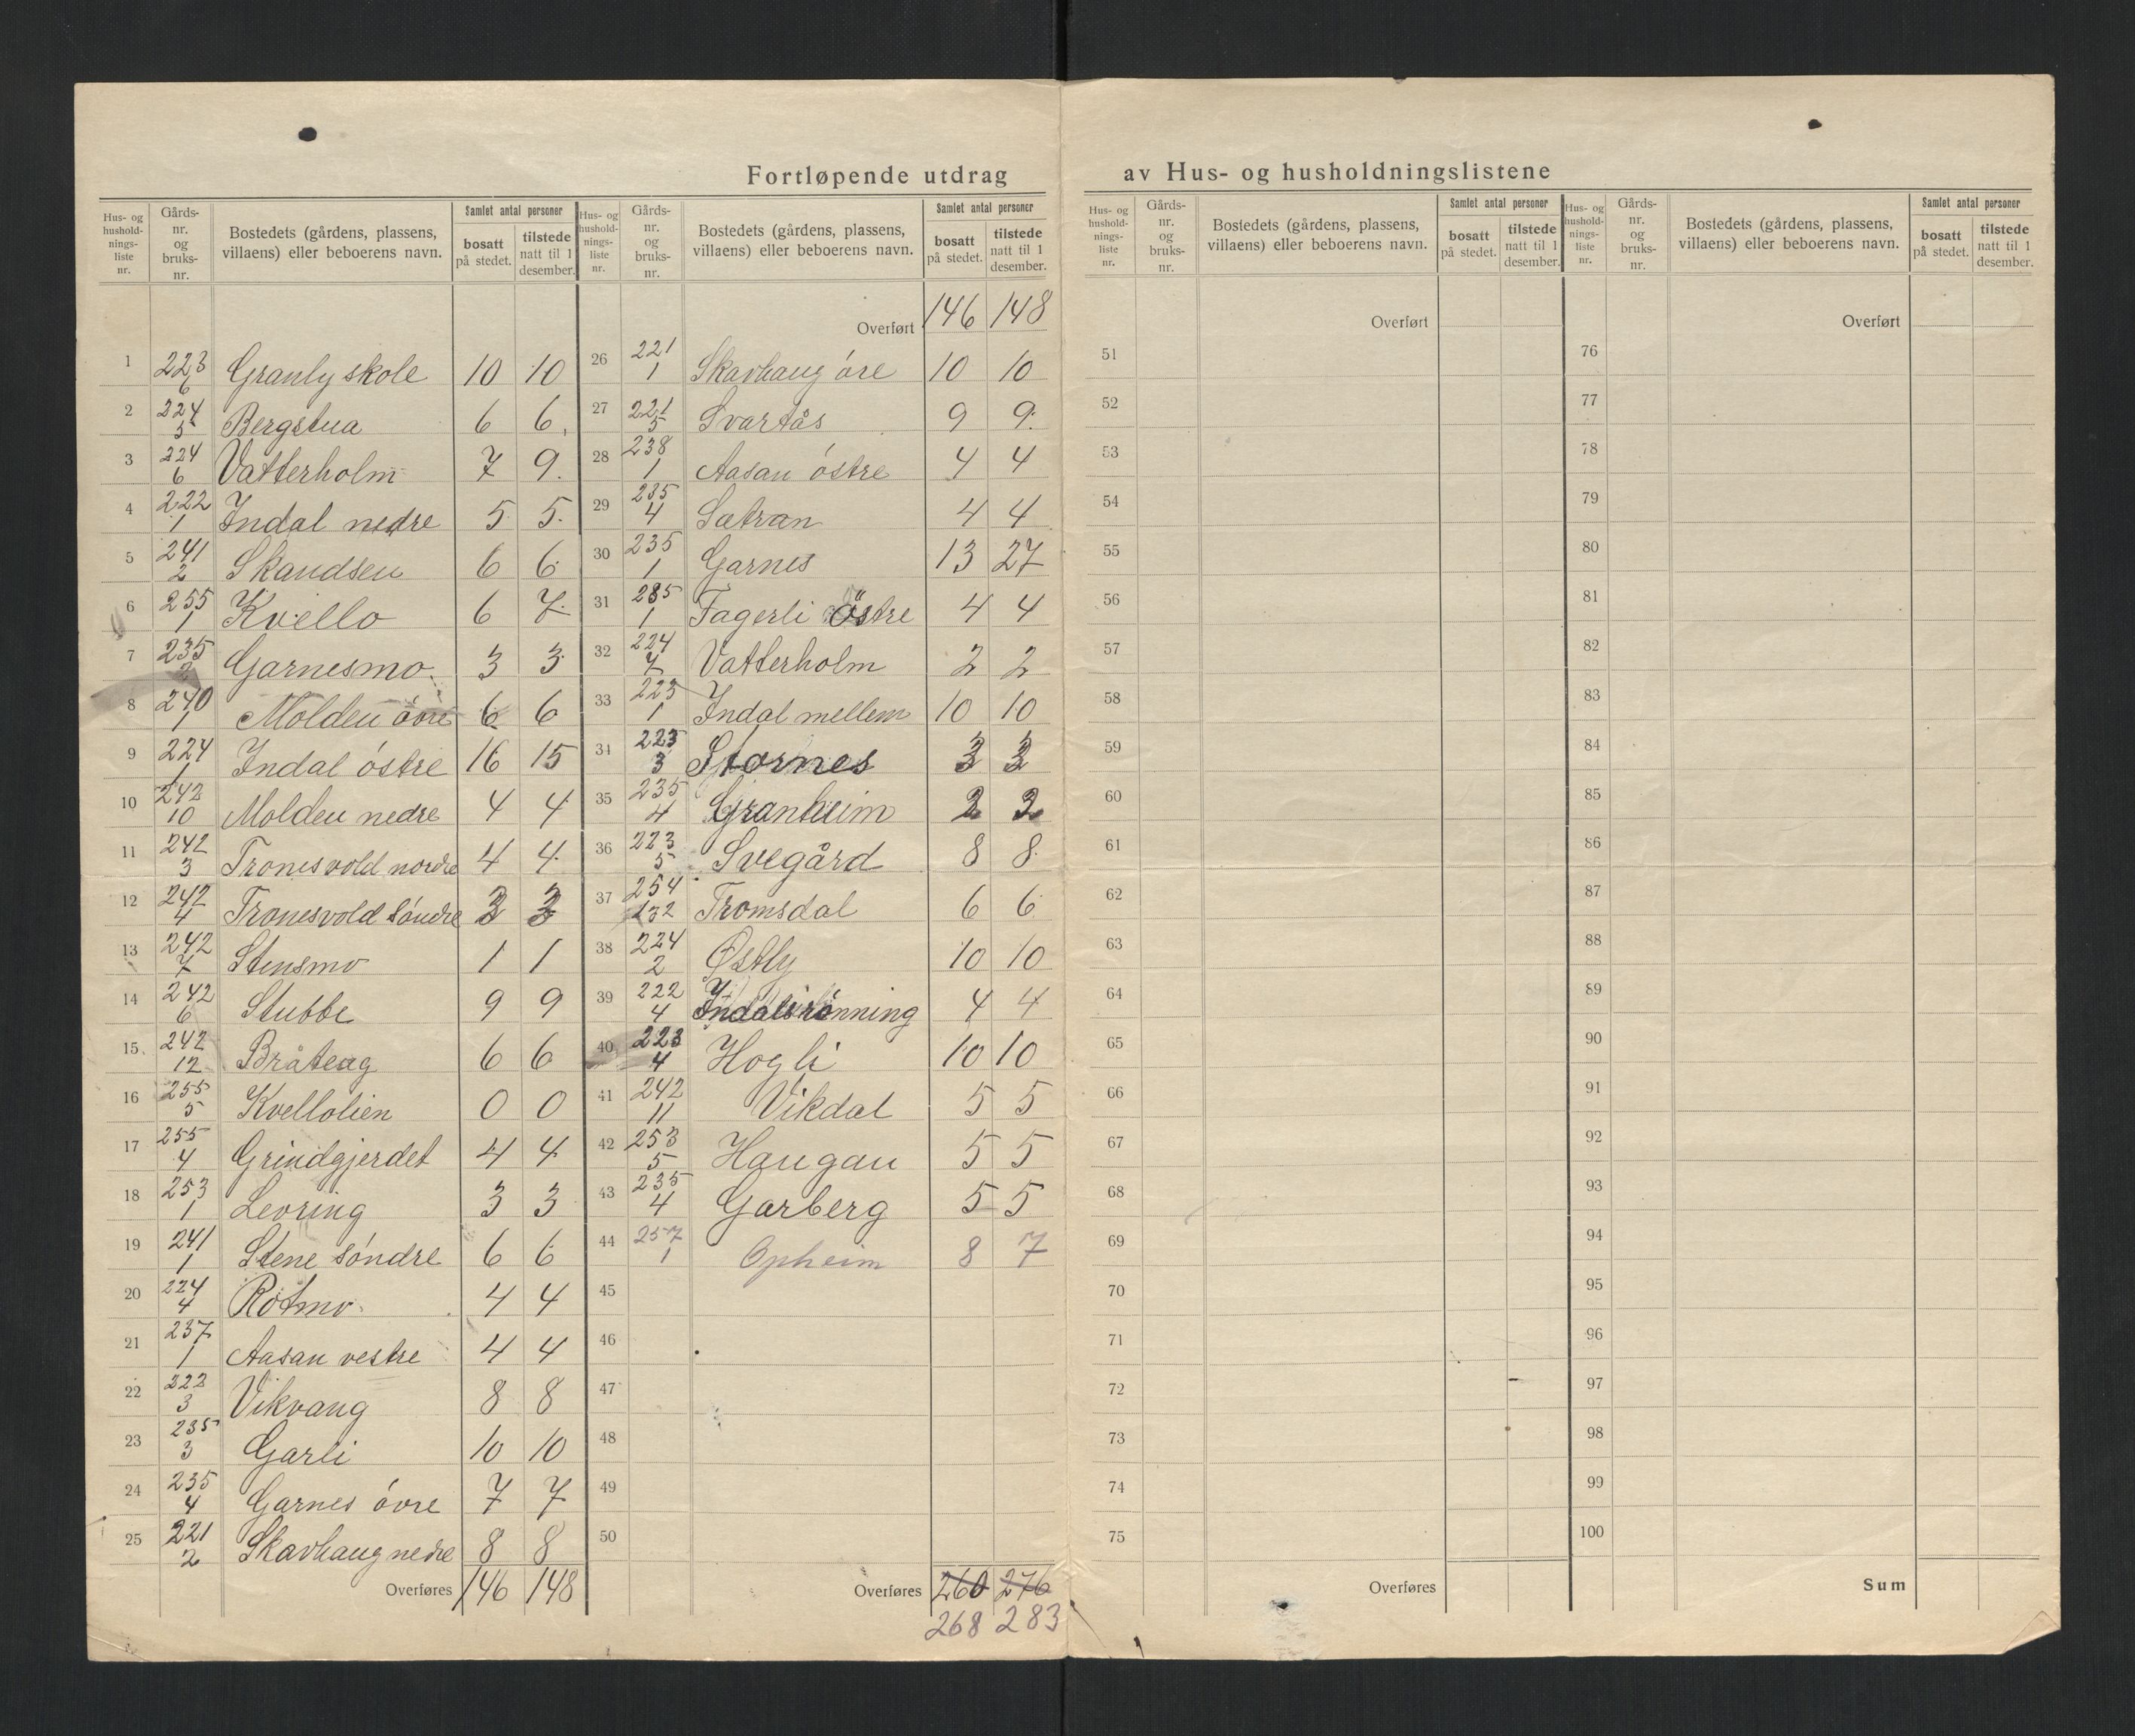 Fortløpende utdrag av Hus- og husholdningslistene
Hus- og husholdnings-liste nr. Gårds-nr. og bruks-nr. Bostedets (gårdens, plassens, villaens) eller beboerens navn. Samlet antal personer bosatt på stedet. tilstede natt til 1 desember.
1 223 6 Granly skole 10 10
2 224 5 Bergstua 6 6
3 224 6 Vatterholm 7 9
4 222 1 Indal nedre 5 5
5 241 2 Skandsen 6 6
6 255 1 Kvello 6 7
7 235 2 Garnesmo 3 3
8 240 1 Molden övre 6 6
9 224 1 Indal östre 16 15
10 242 10 Molden nedre 4 4
11 242 3 Tronesvold nordre 4 4
12 242 4 Tronesvold söndre 3 3
13 242 7 Stensmo 1 1
14 242 6 Stubbe 9 9
15 242 12 Bråteag 6 6
16 255 5 Kvellolien 0 0
17 255 4 Grindgjerdet 4 4
18 253 1 Levring 3 3
19 241 1 Stene söndre 6 6
20 224 4 Rotmo 4 4
21 237 1 Aasan vestre 4 4
22 222 3 Vikvang 8 8
23 235 3 Garli 10 10
24 235 4 Garnes övre 7 7
25 221 2 Skavhaug nedre 8 8
Overføres 146 148
Hus- og husholdnings-liste nr. Gårds-nr. og bruks-nr. Bostedets (gårdens, plassens, villaens) eller beboerens navn. Samlet antal personer bosatt på stedet. tilstede natt til 1 desember.
Overført 146 148
26 221 1 Skavhaug öre 10 10
27 221 5 Svartås 9 9
28 238 1 Aasan östre 4 4
29 235 4 Sætran 4 4
30 235 1 Garnes 13 27
31 285 1 Fagerli östre 4 4
32 224 7 Vatterholm 2 2
33 223 1 Indal mellem 10 10
34 223 3 Stornes 3 3
35 235 4 Granheim 2 2
36 223 5 Svegård 8 8
37 254 132 Tromsdal 6 6
38 224 2 Østly 10 10
39 222 4 Indalsrönning 4 4
40 223 4 Hogli 10 10
41 242 11 Vikdal 5 5
42 253 5 Haugan 5 5
43 235 4 Garberg 5 5
44 257 1 Opheim 8 7
45
46
47
48
49
50
Overføres 260 276
268 283
Hus- og husholdnings-liste nr. Gårds-nr. og bruks-nr. Bostedets (gårdens, plassens, villaens) eller beboerens navn. Samlet antal personer bosatt på stedet. tilstede natt til 1 desember.
Overført
51
52
53
54
55
56
57
58
59
60
61
62
63
64
65
66
67
68
69
70
71
72
73
74
75
Overføres
Hus- og husholdnings-liste nr. Gårds-nr. og bruks-nr. Bostedets (gårdens, plassens, villaens) eller beboerens navn. Samlet antal personer bosatt på stedet. tilstede natt til 1 desember.
Overført
76
77
78
79
80
81
82
83
84
85
86
87
88
89
90
91
92
93
94
95
96
97
98
99
100
Sum